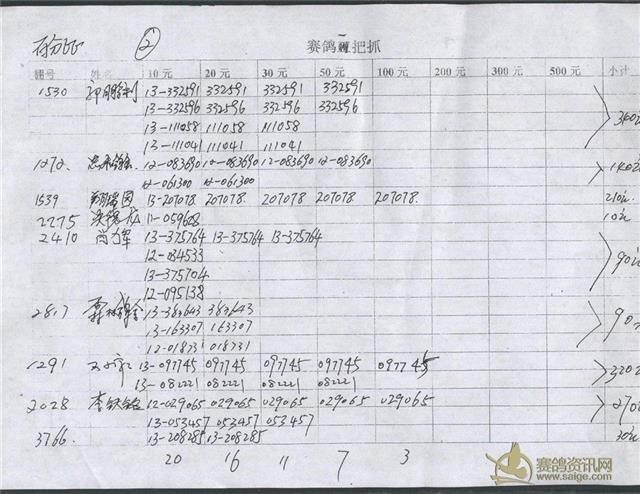 ② 赛鸽 把抓
棚号 姓名 10元 20元 30元 50元 100元 200元 300元 500元 小计
1530 13-332591 332591 332591 332591
13-332596 332596 332596 332596
13-111058 111058 111058
13-111041 111041 111041
1272. 12-083690 12-083690 12-083690 12-083690
12-061300 12-061300
1539 13-207078 207078 207078 207078 207078 210元
2275 11-059628 10元
2410 13-375764 13-375764 13-375764
12-034533 90元
13-375704
12-095138
2817 13-383643 383643
13-163307 163307 90元
12-018731 018731
1291 13-097745 097745 097745 097745 097745
13-082221 082221 082221 082221 320元
2028 李 12-029065 029065 029065 029065 029065 270元
13-053457 053457 053457
3766. 13-208285 13-208285 30元
20 16 11 7 3
赛鸽资讯网
www.saige.com